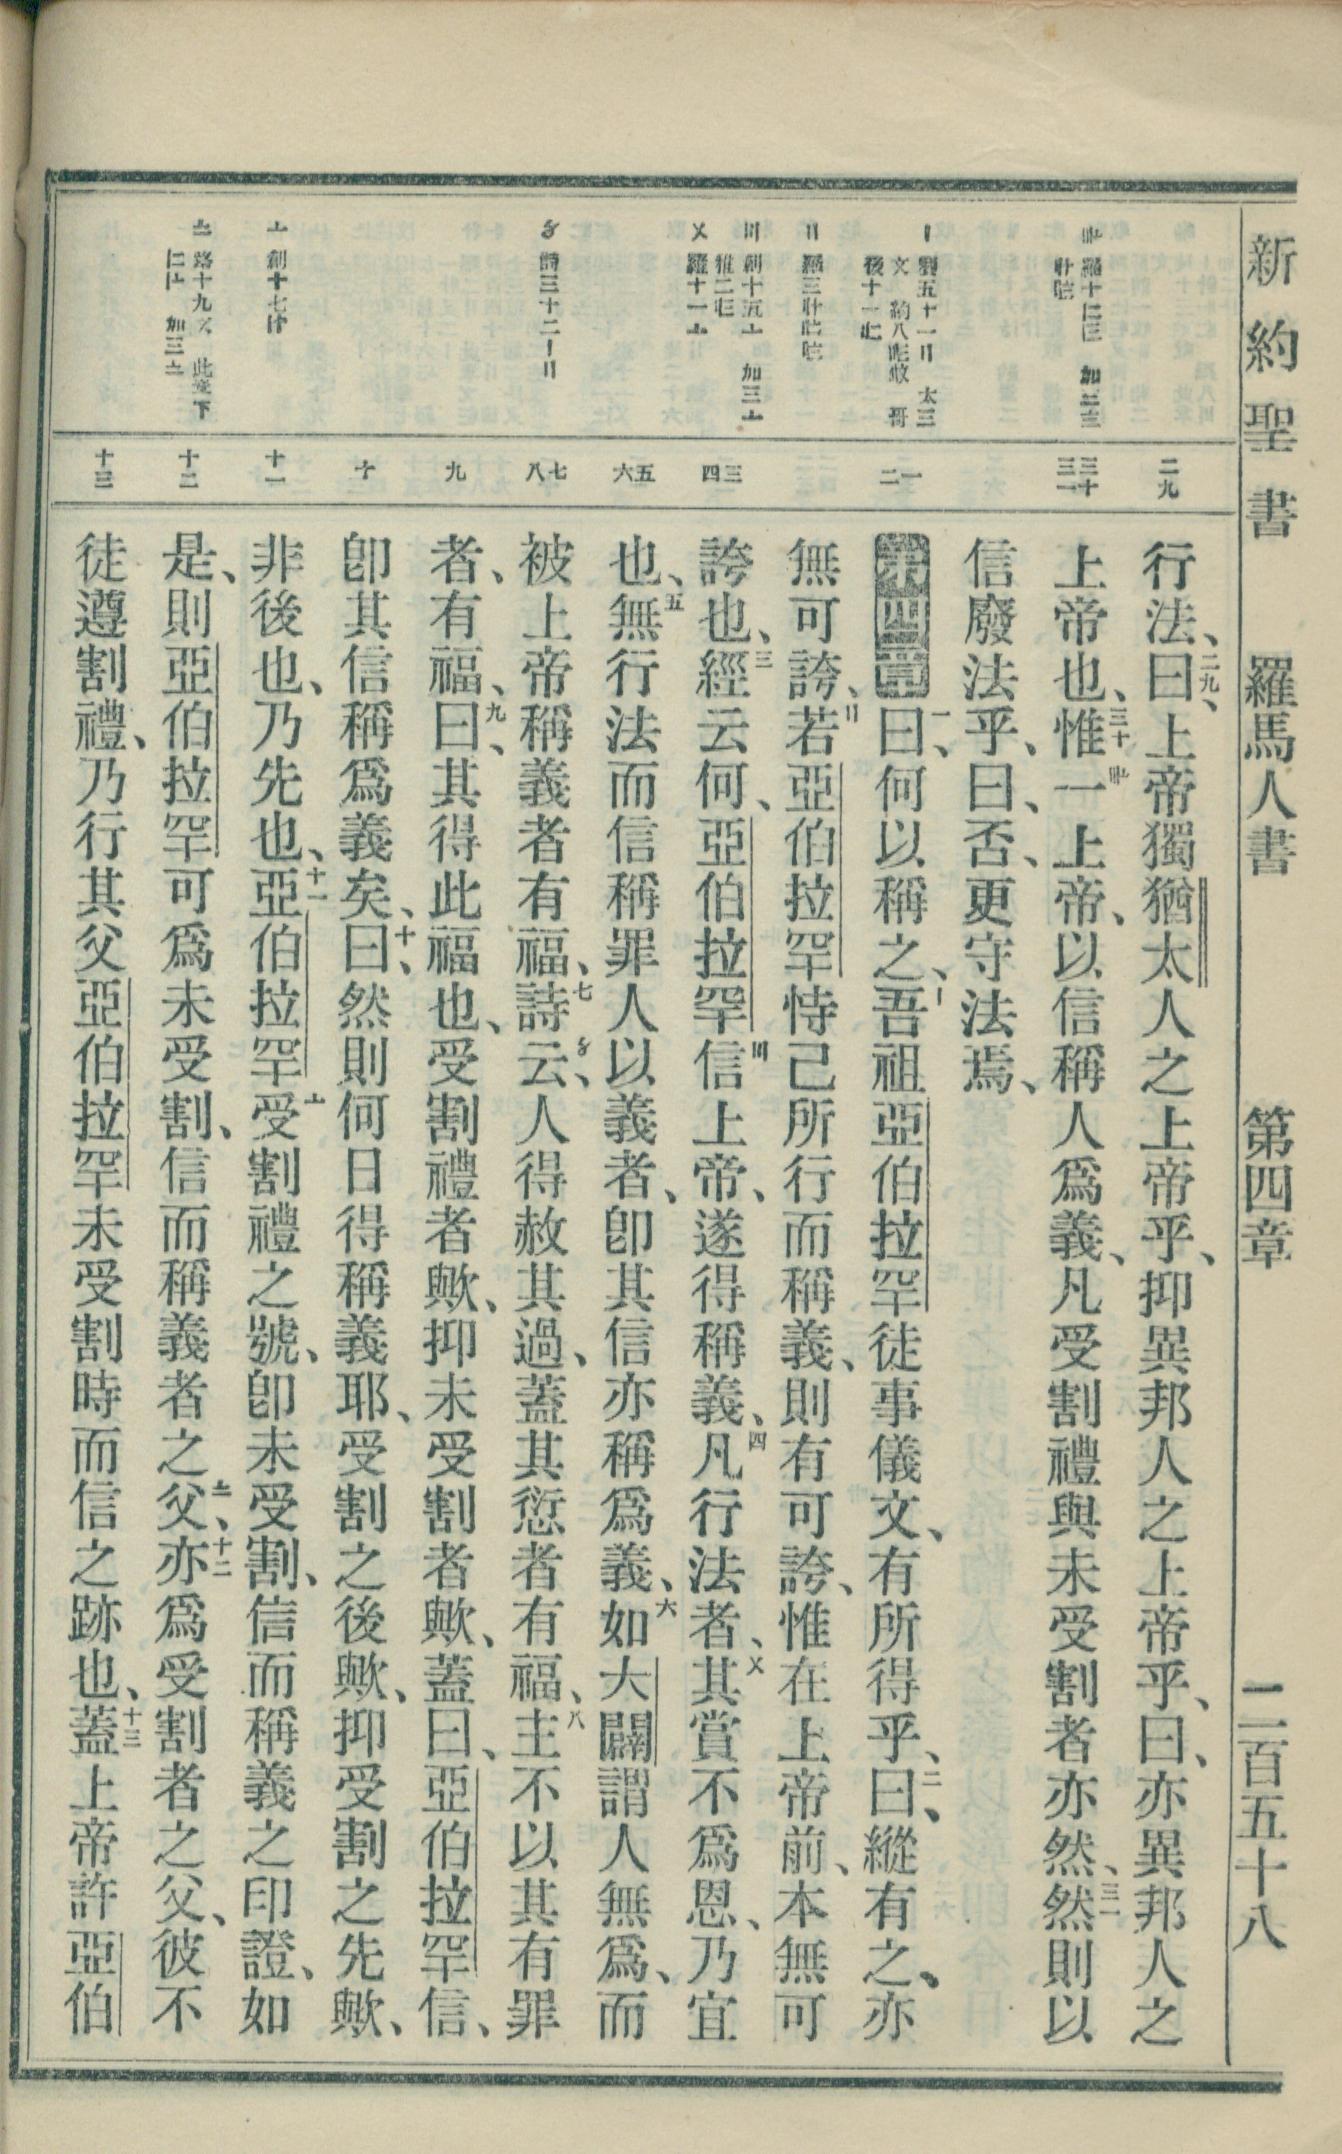 新約聖書 羅馬人書 第四章 二百五十八
二九
三十 三一
一 二
三 四
五 六
七 八
九
十
十一
十二
十三
行法、二九曰、上帝獨猶太人之上帝乎、抑異邦人之上帝乎、曰、亦異邦人之
上帝也、三十惟一上帝、以信稱人爲義、凡受割禮與未受割者亦然、三一然則以
信廢法乎、曰、否、更守法焉、
第四章 一曰、何以稱之、吾祖亞伯拉罕徒事儀文、有所得乎、二曰、縱有之、亦
無可誇、若亞伯拉罕恃己所行而稱義、則有可誇、惟在上帝前、本無可
誇也、三經云何、亞伯拉罕信上帝、遂得稱義、四凡行法者、其賞不爲恩、乃宜
也、五無行法而信稱罪人以義者、卽其信亦稱爲義、六如大闢謂人無爲、而
被上帝稱義者有福、七詩云、人得赦其過、蓋其愆者有福、八主不以其有罪
者、有福、九曰、其得此福也、受割禮者歟、抑未受割者歟、蓋曰、亞伯拉罕信、
卽其信稱爲義矣、十曰、然則何日得稱義耶、受割之後歟、抑受割之先歟、
非後也、乃先也、十一亞伯拉罕受割禮之號、卽未受割、信而稱義之印證、如
是、則亞伯拉罕可爲未受割、信而稱義者之父、十二亦爲受割者之父、彼不
徒遵割禮、乃行其父亞伯拉罕未受割時而信之跡也、十三蓋上帝許亞伯